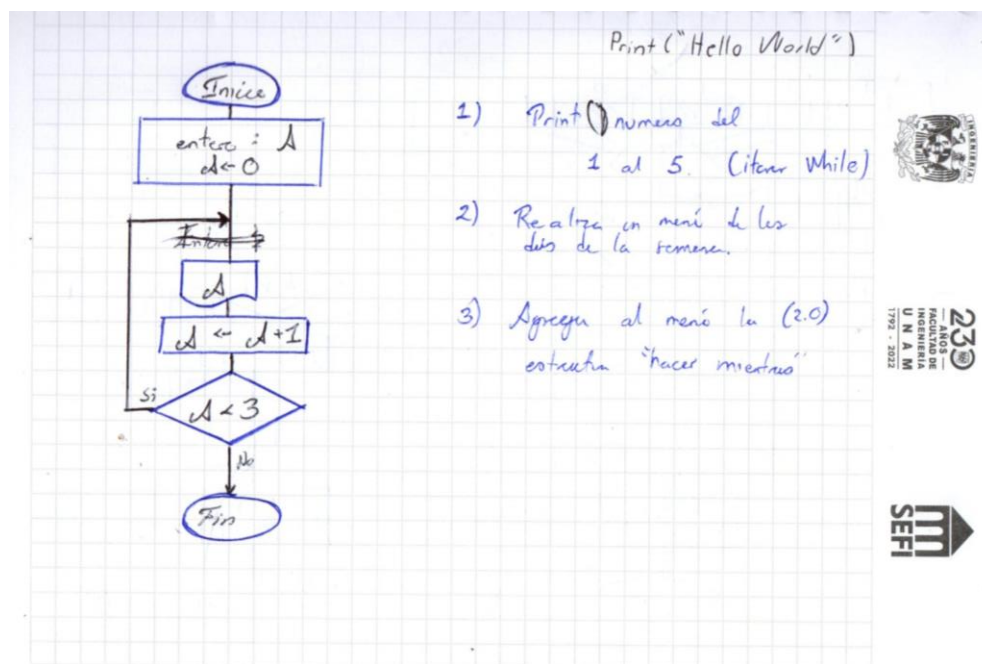 Print ("Hello World")
Inicio
entero : A
A ← 0
A
A ← A+1
Si
A < 3
No
Fin
1) Print () numero del
1 al 5. (iterar While)
2) Realiza un menú de los
dias de la semana.
3) Agregar al menú la (2.0)
estructura "hacer mientras"
INGENIERIA
230
— AÑOS —
FACULTAD DE
INGENIERÍA
U N A M
1792 - 2022
SEFI